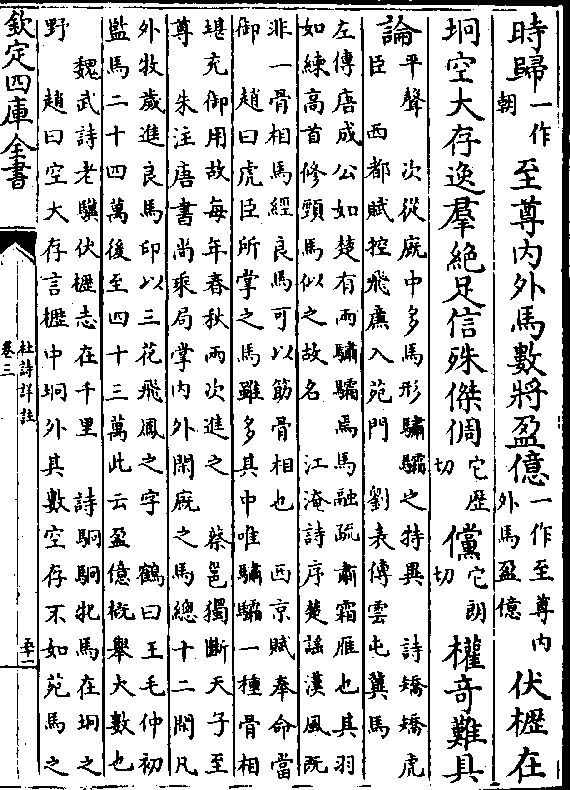 時歸一作朝至尊内外馬數將盈億一作至尊内外馬盈億伏櫪在
坰空大存逸羣絶足信殊傑倜它歴切儻它朗切權奇難具
論平聲　次從廐中多馬形驌驦之特異　詩矯矯虎
臣　西都賦控飛廉入苑門　劉表傳雲屯冀馬
左傳唐成公如楚有兩驌驦焉馬融疏肅霜雁也其羽
如練高首修頸馬似之故名　江淹詩序楚謡漢風既
非一骨相馬經良馬可以筋骨相也　西京賦奉命當
御　趙曰虎臣所掌之馬雖多其中唯驌驦一種骨相
堪充御用故每年春秋兩次進之　蔡邕獨斷天子至
尊　朱注唐書尚乘局掌内外閑廐之馬總十二閑凡
外牧歲進良馬印以三花飛鳳之字　鶴曰王毛仲初
監馬二十四萬後至四十三萬此云盈億概舉大數也
魏武詩老驥伏櫪志在千里　詩駉駉牝馬在坰之
野　趙曰空大存言櫪中坰外其數空存不如苑馬之
欽定四庫全書
杜詩詳註
卷三